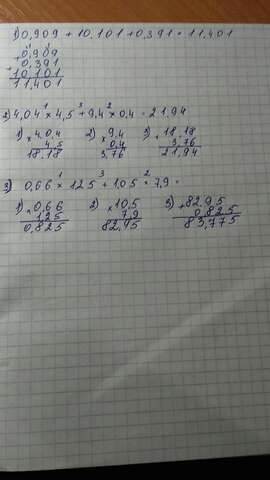 1) 0,909 + 10,101 + 0,391 = 11,401
0,909
+ 0,391
10,101
11,401
2) 4,04 × 4,5 + 9,4 × 0,4 = 21,94
1) × 4,04
4,5
18,18
2) × 9,4
0,4
3,76
3) + 18,18
3,76
21,94
3) 0,66 × 125 + 1,05 × 7,9 =
1) × 0,66
1,25
0,825
2) × 10,5
7,9
82,95
3) + 82,95
0,825
83,775